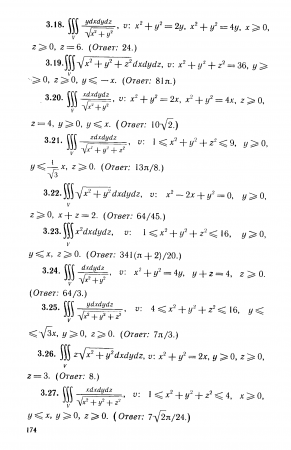 3.18. ∭ ydxdydz/√(x² + y²), v: x² + y² = 2y, x² + y² = 4y, x ⩾ 0,
z ⩾ 0, z = 6. (Ответ: 24.)
3.19. ∭ √(x² + y² + z²) dxdydz, v: x² + y² + z² = 36, y ⩾
⩾ 0, z ⩾ 0, y ⩽ − x. (Ответ: 81π.)
3.20. ∭ xdxdydz/√(x² + y²), v: x² + y² = 2x, x² + y² = 4x, z ⩾ 0,
z = 4, y ⩾ 0, y ⩽ x. (Ответ: 10√2.)
3.21. ∭ zdxdydz/√(x² + y² + z²), v: 1 ⩽ x² + y² + z² ⩽ 9, y ⩾ 0,
y ⩽ 1/√3 x, z ⩾ 0. (Ответ: 13π/8.)
3.22. ∭ √(x² + y²) dxdydz, v: x² − 2x + y² = 0, y ⩾ 0,
z ⩾ 0, x + z = 2. (Ответ: 64/45.)
3.23. ∭ x²dxdydz, v: 1 ⩽ x² + y² + z² ⩽ 16, y ⩾ 0,
y ⩽ x, z ⩾ 0. (Ответ: 341(π + 2)/20.)
3.24. ∭ dxdydz/√(x² + y²), v: x² + y² = 4y, y + z = 4, z ⩾ 0.
(Ответ: 64/3.)
3.25. ∭ ydxdydz/√(x² + y² + z²), v: 4 ⩽ x² + y² + z² ⩽ 16, y ⩽
⩽ √3x, y ⩾ 0, z ⩾ 0. (Ответ: 7π/3.)
3.26. ∭ z√(x² + y²) dxdydz, v: x² + y² = 2x, y ⩾ 0, z ⩾ 0,
z = 3. (Ответ: 8.)
3.27. ∭ ydxdydz/√(x² + y² + z²), v: 1 ⩽ x² + y² + z² ⩽ 4, x ⩾ 0,
y ⩽ x, y ⩾ 0, z ⩾ 0. (Ответ: 7√2π/24.)
174